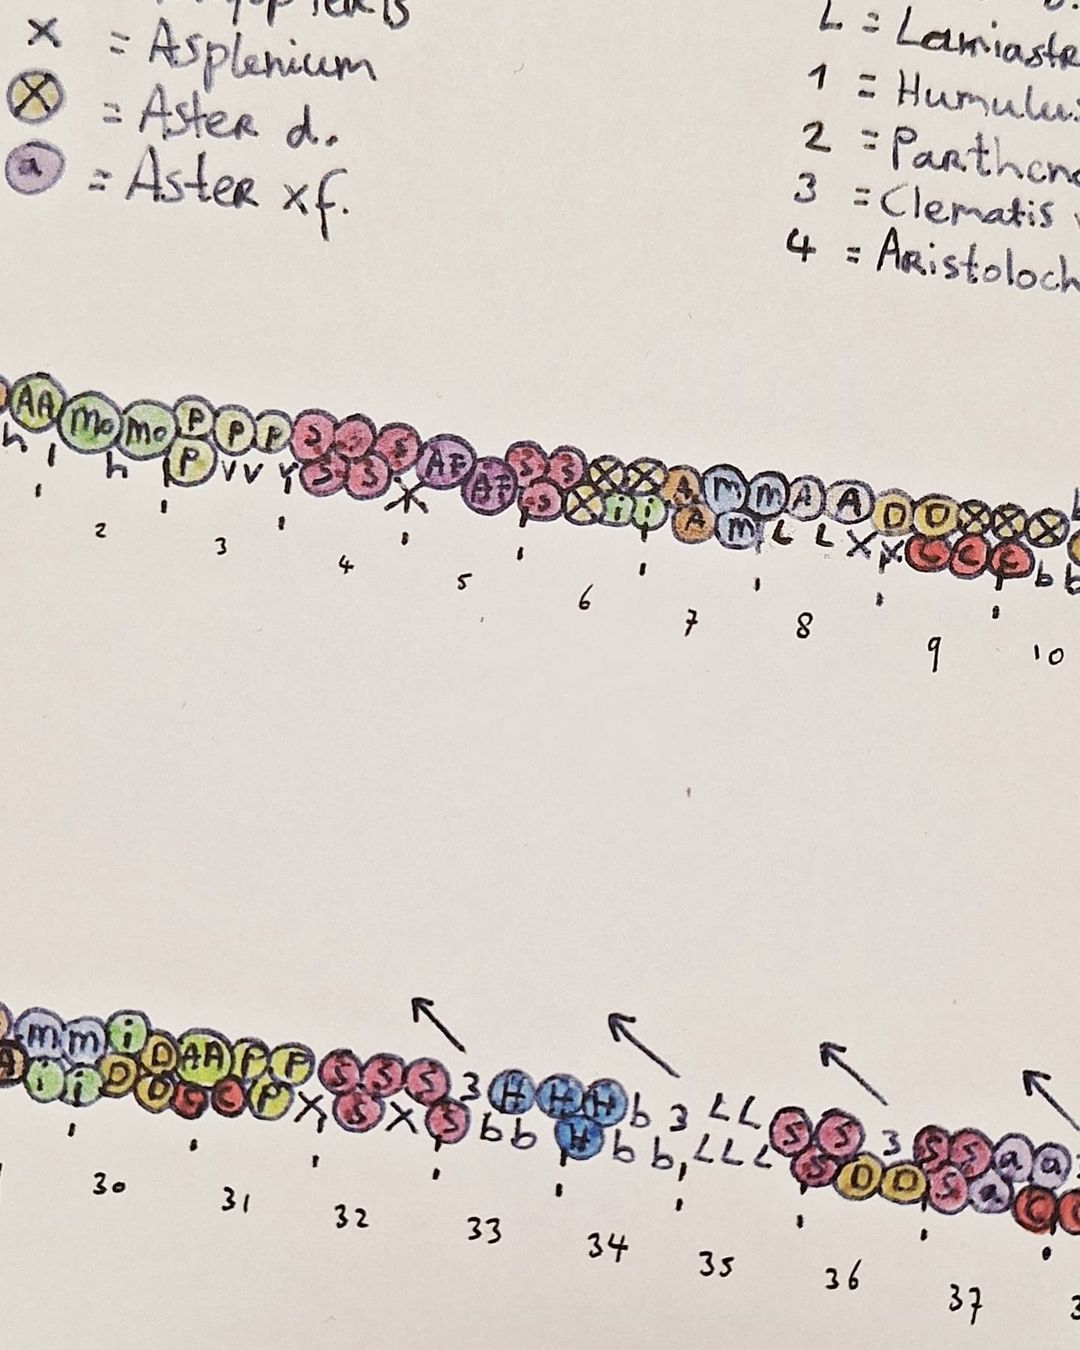 x = Asplenium
X = Aster d.
a = Aster xf.
L = Lamiastr
1 = Humulu
2 = Parthen
3 = Clematis
4 = Aristoloch
AA Mo Mo P P P S S S AF AF S S X X A m m A A D D X X X
h h P v v Y S S X S X i i A m L L X X C C C b b
2 3 4 5 6 7 8 9 10
m m i D AA P P S S S 3 H H H b 3 L L S S 3 S S a a
A i i D D C C P X S X S b b H b b L L L S D D S a C C
30 31 32 33 34 35 36 37 3